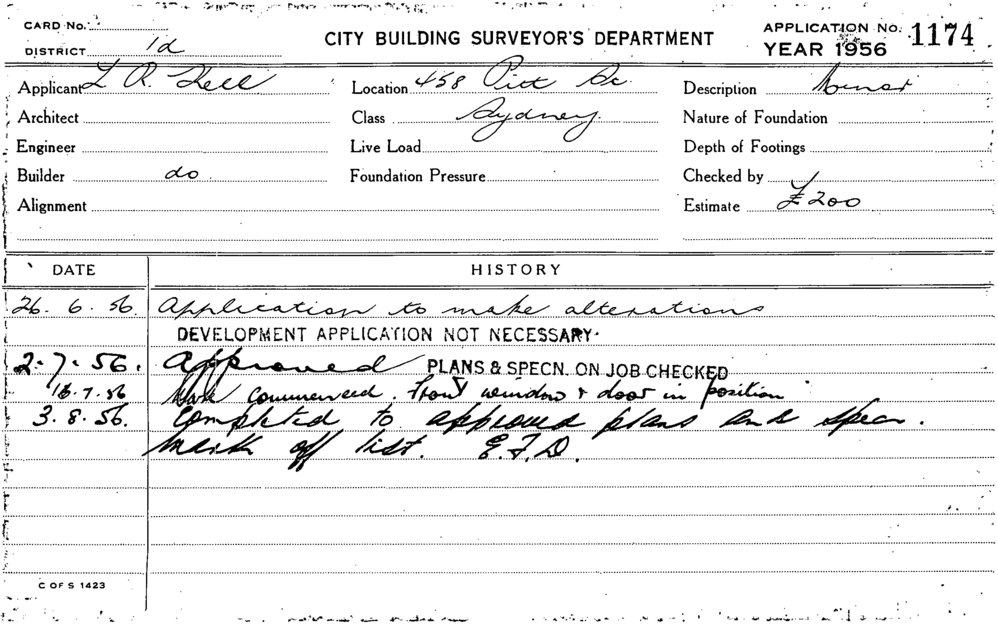 CARD No.
DISTRICT 1d
CITY BUILDING SURVEYOR'S DEPARTMENT
APPLICATION No. 1174
YEAR 1956
Applicant L R. Hell
Location 458 Pitt St
Description Minor
Architect
Class Sydney
Nature of Foundation
Engineer
Live Load
Depth of Footings
Builder do
Foundation Pressure
Checked by
Alignment
Estimate £200
DATE HISTORY
26. 6. 56. Application to make alterations
DEVELOPMENT APPLICATION NOT NECESSARY.
2. 7. 56. Approved PLANS & SPECN. ON JOB CHECKED
16. 7. 56 Work commenced. Front window & door in position
3. 8. 56. Completed to approved plans and specn.
Mark off list. E.F.D.
C OF S 1423